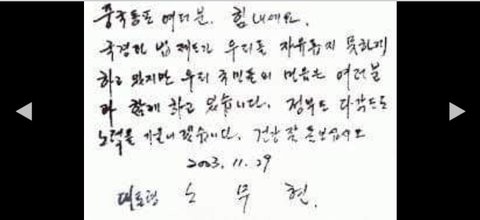 중국동포 여러분. 힘내세요.
국경과 법 제도가 우리를 자유롭지 못하게
하고 있지만 우리 국민들의 믿음은 여러분
과 함께 하고 있습니다. 정부도 다각도로
노력을 기울이겠습니다. 건강 잘 돌보십시오
2003. 11. 29
대통령 노 무 현.